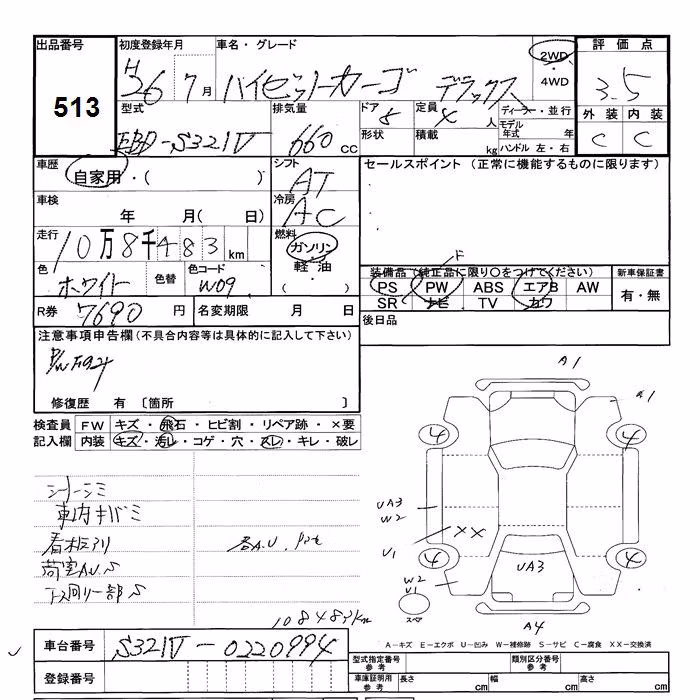 出品番号 513
初度登録年月 H26 7月
車名・グレード ハイゼットカーゴ デラックス
2WD ・ 4WD
評価点 3.5
外装 内装
C C
型式 EBD-S321V
排気量 660 CC
ドア 5
形状
定員 4 人
積載 kg
ディーラー・並行
モデル年式 年
ハンドル 左・右
車歴 自家用・( )
シフト AT
車検 年 月( 日)
冷房 AC
走行 10万8千483 km
燃料 ガソリン ・ 軽油 ・ ( )
色 ホワイト
色替
色コード W09
R券 7690 円
名変期限 月 日
セールスポイント (正常に機能するものに限ります)
装備品(純正品に限り○をつけてください)
PS PW ABS エアB AW
SR ナビ TV カワ
新車保証書
有・無
後日品
注意事項申告欄(不具合内容等は具体的に記入して下さい)
修復歴 有 〔箇所 〕
検査員記入欄
FW キズ・飛石・ヒビ割・リペア跡・×要
内装 キズ・汚レ・コゲ・穴・スレ・キレ・破レ
シートシミ
車内キバミ
看板アリ
荷室A.U.S
下廻り一部S
各A.U.
108483km
A1
A1
4
4
UA3
W2
XX
U1
4
4
UA3
W2
U1
スペア
A4
A－キズ E－エクボ U－凹み W－補修跡 S－サビ C－腐食 XX－交換済
車台番号 S321V-0220994
登録番号
型式指定番号 参考
類別区分番号 参考
車庫証明用 参考
長さ cm
幅 cm
高さ cm